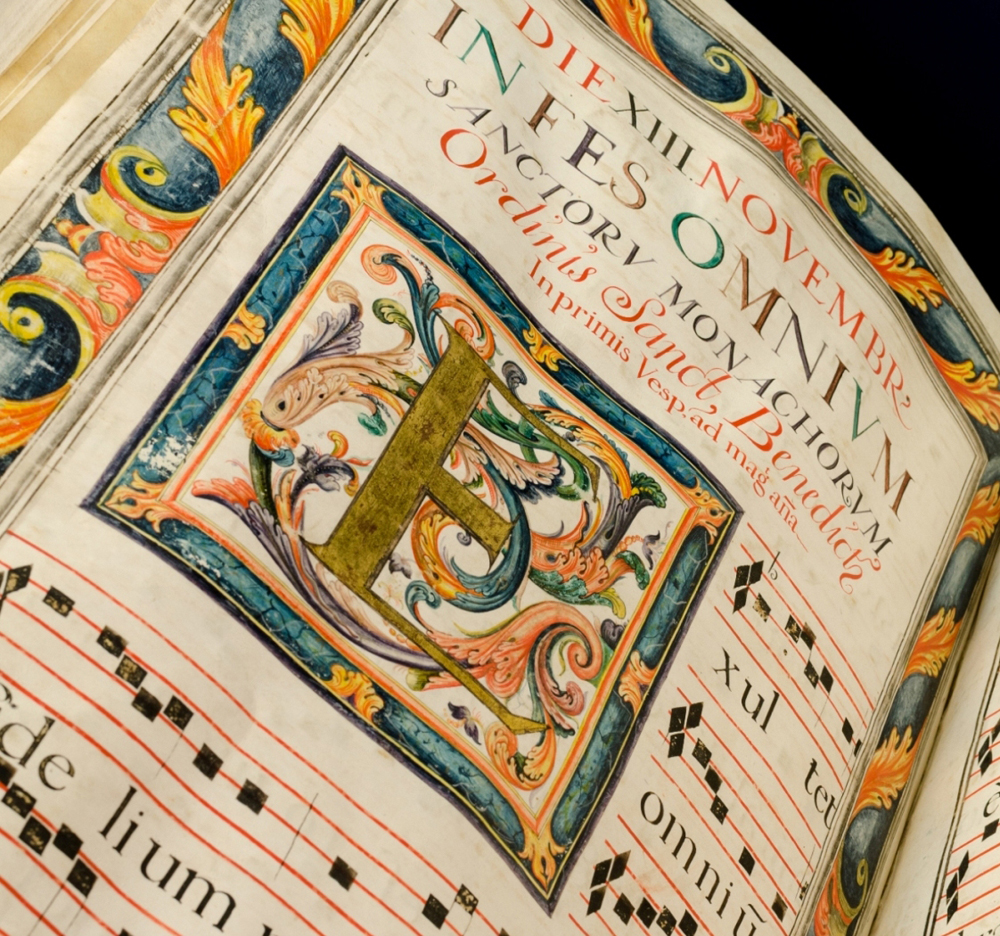 DIE XIII. NOVEMBR
IN FES OMNIVM
SANCTORV MONACHORVM
Ordinis Sanct Benedict
In primis Vesp. ad mag aña
E
xul
tet
omniū
fide
lium